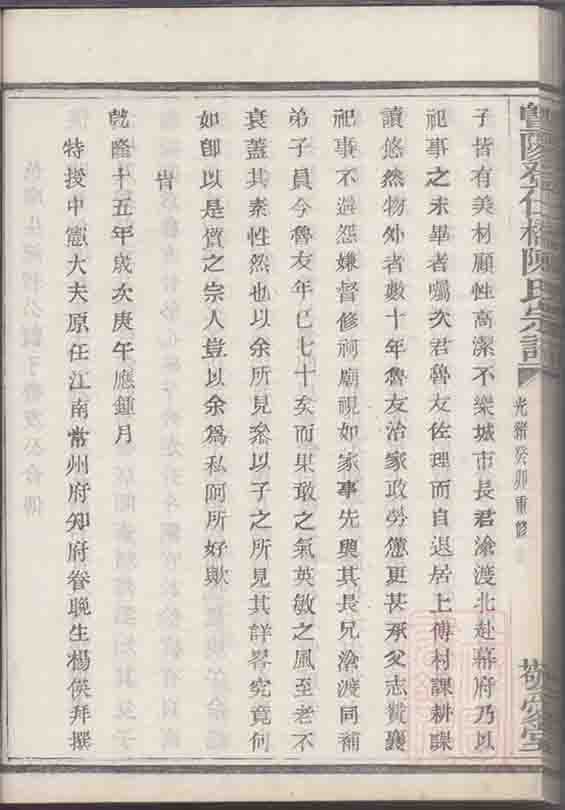 子皆有美材顧性高潔不樂城市長君滄渡北赴幕府乃以
祀事之未畢者囑次君魯友佐理而自退居上傅村課耕課
讀悠然物外者數十年魯友治家政勞憊更甚承父志贊襄
祀事不避怨嫌督修祠廟視如家事先與其長兄滄渡同補
弟子員今魯友年已七十矣而果敢之氣英敏之風至老不
衰蓋其素性然也以余所見叅以子之所見其詳畧究竟何
如卽以是質之宗人豈以余爲私阿所好歟
旹
乾隆十五年歲次庚午應鍾月
特授中憲大夫原任江南常州府知府眷晚生楊俟拜撰
陳氏宗譜
光緒癸卯重修